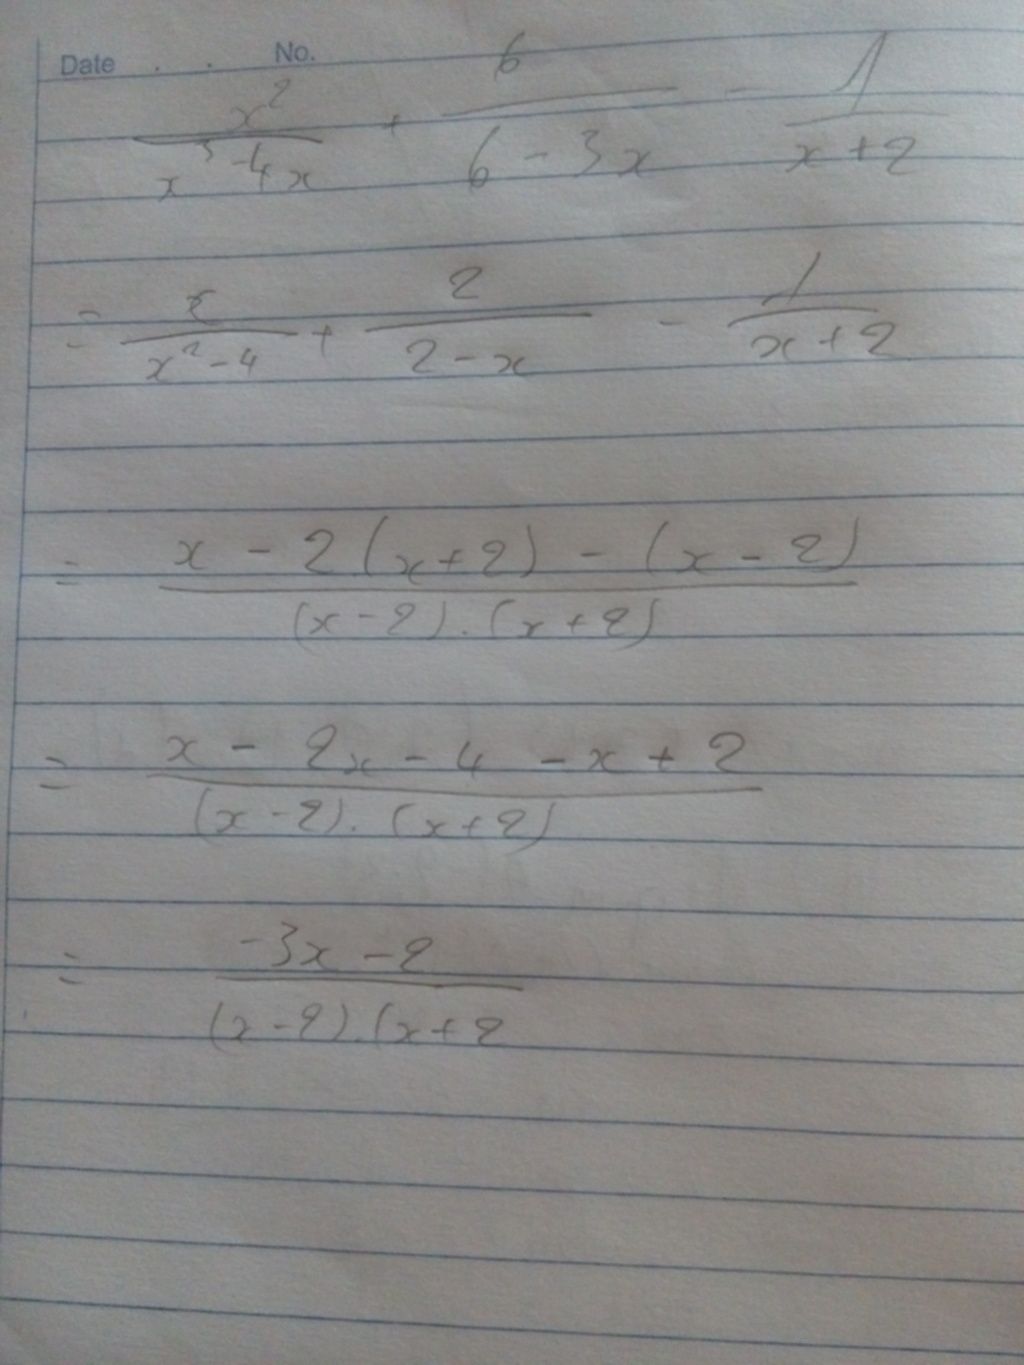 Date . . No.
x²/(x³-4x) + 6/(6-3x) - 1/(x+2)
= x/(x²-4) + 2/(2-x) - 1/(x+2)
= (x - 2(x+2) - (x-2))/((x-2).(x+2))
= (x - 2x - 4 - x + 2)/((x-2).(x+2))
= (-3x-2)/((x-2).(x+2